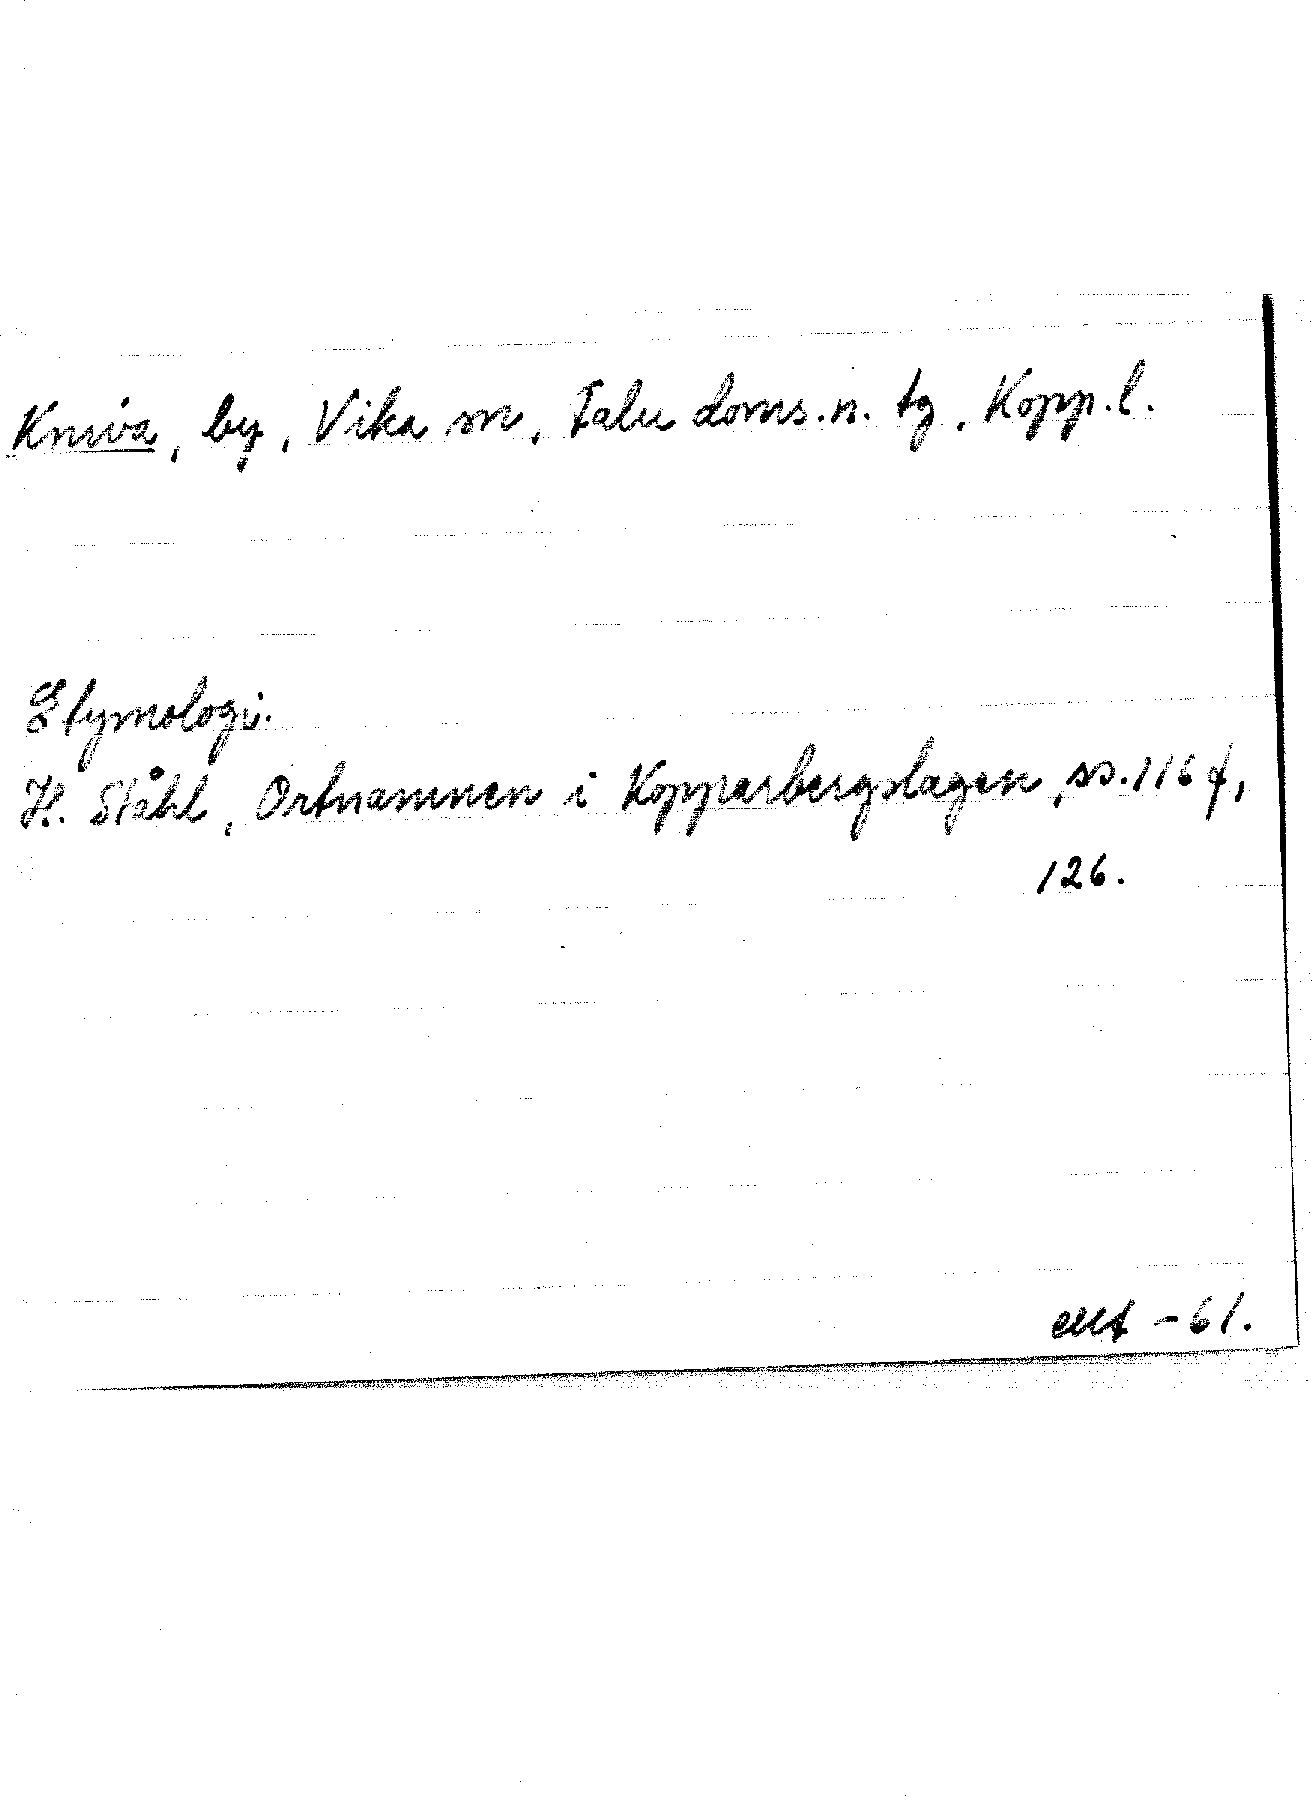 Kniva, by, Vika sn, Falu doms.n. tg, Kopp.l.
Etymologi.
H. Ståhl, Ortnamnen i Kopparbergslagen, ss. 116 f,
126.
-61.